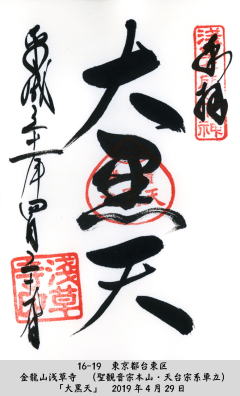 奉拝
大黒天
平成三十一年四月二十九日
浅草寺
16-19 東京都台東区
金龍山浅草寺 (聖観音宗本山・天台宗系単立)
「大黒天」 2019年4月29日